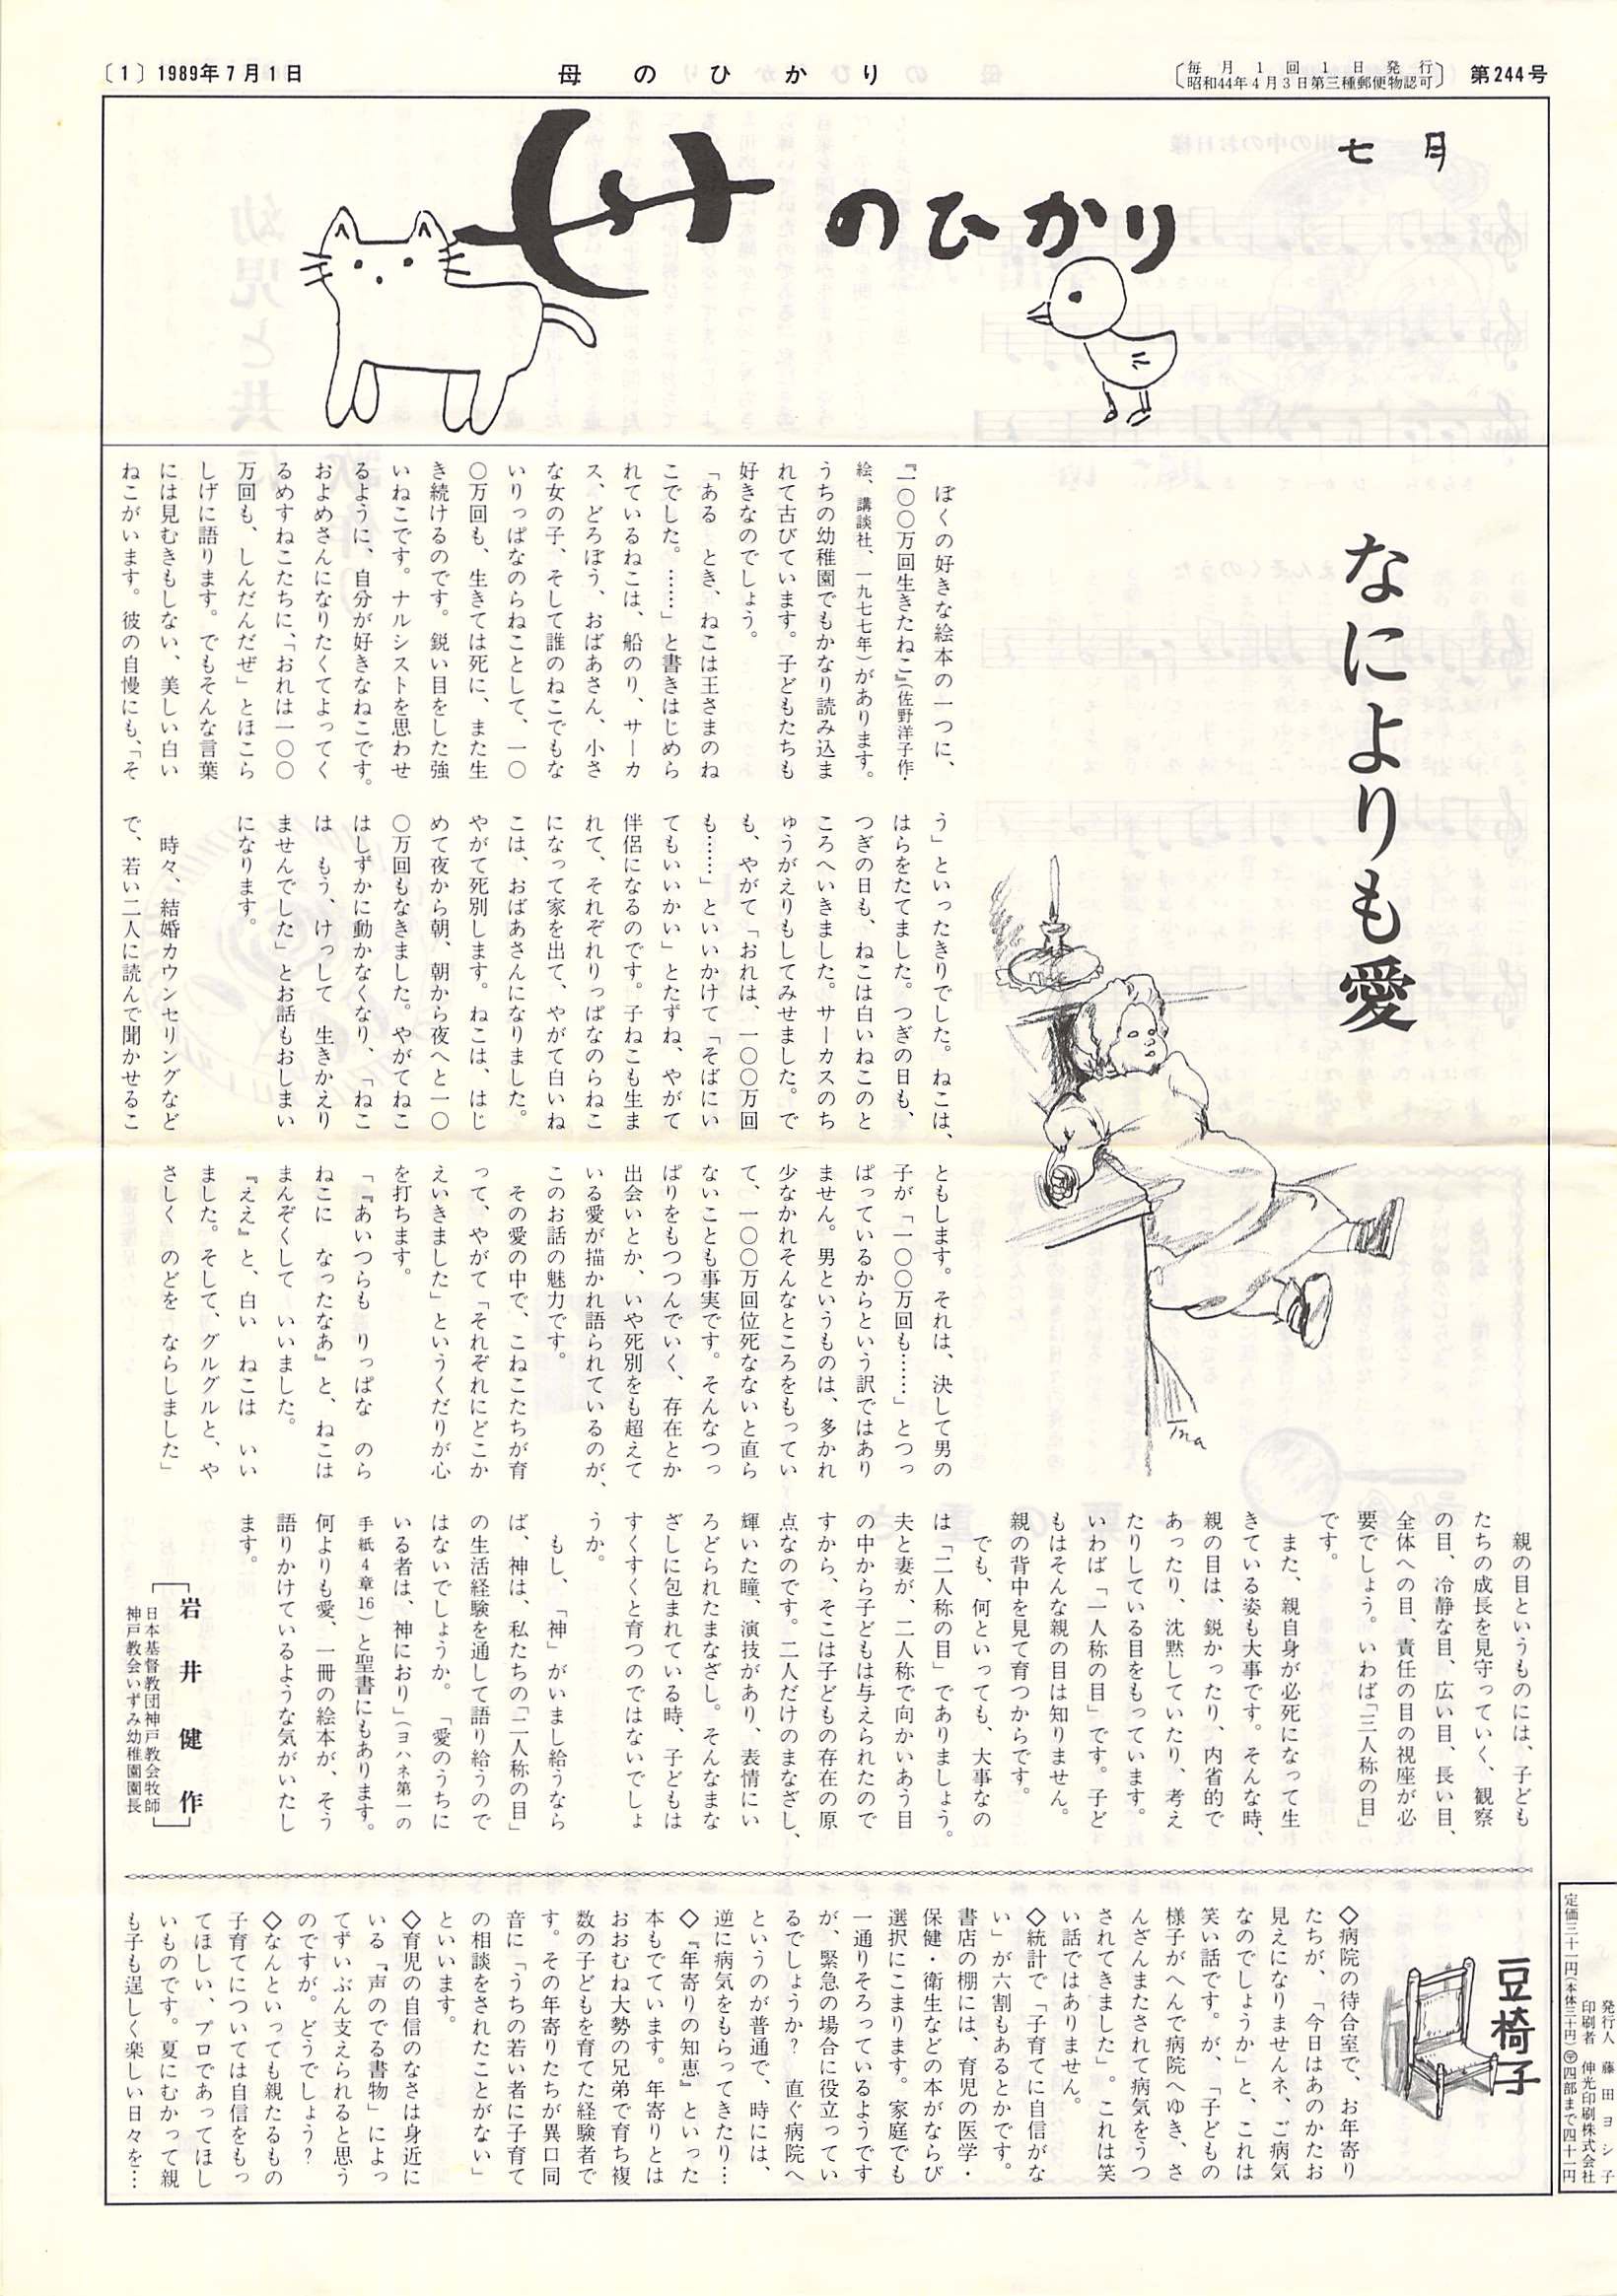 〔1〕1989年7月1日
母のひかり
毎月1回1日発行
昭和44年4月3日第三種郵便物認可
第244号
七月
母のひかり
なによりも愛
ぼくの好きな絵本の一つに、
『一〇〇万回生きたねこ』(佐野洋子作・
絵、講談社、一九七七年)があります。
うちの幼稚園でもかなり読み込ま
れて古びています。子どもたちも
好きなのでしょう。
「ある　とき、ねこは王さまのね
こでした。……」と書きはじめら
れているねこは、船のり、サーカ
ス、どろぼう、おばあさん、小さ
な女の子、そして誰のねこでもな
いりっぱなのらねことして、一〇
〇万回も、生きては死に、また生
き続けるのです。鋭い目をした強
いねこです。ナルシストを思わせ
るように、自分が好きなねこです。
およめさんになりたくてよってく
るめすねこたちに、「おれは一〇〇
万回も、しんだんだぜ」とほこら
しげに語ります。でもそんな言葉
には見むきもしない、美しい白い
ねこがいます。彼の自慢にも、「そ
う」といったきりでした。ねこは、
はらをたてました。つぎの日も、
つぎの日も、ねこは白いねこのと
ころへいきました。サーカスのち
ゅうがえりもしてみせました。で
も、やがて「おれは、一〇〇万回
も……」といいかけて「そばにい
てもいいかい」とたずね、やがて
伴侶になるのです。子ねこも生ま
れて、それぞれりっぱなのらねこ
になって家を出て、やがて白いね
こは、おばあさんになりました。
やがて死別します。ねこは、はじ
めて夜から朝、朝から夜へと一〇
〇万回もなきました。やがてねこ
はしずかに動かなくなり、「ねこ
は　もう、けっして　生きかえり
ませんでした」とお話もおしまい
になります。
時々、結婚カウンセリングなど
で、若い二人に読んで聞かせるこ
ともします。それは、決して男の
子が「一〇〇万回も……」とつっ
ぱっているからという訳ではあり
ません。男というものは、多かれ
少なかれそんなところをもってい
て、一〇〇万回位死なないと直ら
ないことも事実です。そんなつっ
ぱりをもつつんでいく、存在とか
出会いとか、いや死別をも超えて
いる愛が描かれ語られているのが、
このお話の魅力です。
その愛の中で、こねこたちが育
って、やがて「それぞれにどこか
えいきました」というくだりが心
を打ちます。
「『あいつらも　りっぱな　のら
ねこに　なったなあ』と、ねこは
まんぞくして　いいました。
『ええ』と、白い　ねこは　いい
ました。そして、グルグルと、や
さしく　のどを　ならしました」
Ina
親の目というものには、子ども
たちの成長を見守っていく、観察
の目、冷静な目、広い目、長い目、
全体への目、責任の目の視座が必
要でしょう。いわば「三人称の目」
です。
また、親自身が必死になって生
きている姿も大事です。そんな時、
親の目は、鋭かったり、内省的で
あったり、沈黙していたり、考え
たりしている目をもっています。
いわば「一人称の目」です。子ど
もはそんな親の目は知りません。
親の背中を見て育つからです。
でも、何といっても、大事なの
は「二人称の目」でありましょう。
夫と妻が、二人称で向かいあう目
の中から子どもは与えられたので
すから、そこは子どもの存在の原
点なのです。二人だけのまなざし、
輝いた瞳、演技があり、表情にい
ろどられたまなざし。そんなまな
ざしに包まれている時、子どもは
すくすくと育つのではないでしょ
うか。
もし、「神」がいまし給うなら
ば、神は、私たちの「二人称の目」
の生活経験を通して語り給うので
はないでしょうか。「愛のうちに
いる者は、神におり」(ヨハネ第一の
手紙4章16)と聖書にもあります。
何よりも愛、一冊の絵本が、そう
語りかけているような気がいたし
ます。
岩井健作
日本基督教団神戸教会牧師
神戸教会いずみ幼稚園園長
豆椅子
◇病院の待合室で、お年寄り
たちが、「今日はあのかたお
見えになりませんネ、ご病気
なのでしょうか」と、これは
笑い話です。が、「子どもの
様子がへんで病院へゆき、さ
んざんまたされて病気をうつ
されてきました」。これは笑
い話ではありません。
◇統計で「子育てに自信がな
い」が六割もあるとかです。
書店の棚には、育児の医学・
保健・衛生などの本がならび
選択にこまります。家庭でも
一通りそろっているようです
が、緊急の場合に役立ってい
るでしょうか?　直ぐ病院へ
というのが普通で、時には、
逆に病気をもらってきたり…
◇『年寄りの知恵』といった
本もでています。年寄りとは
おおむね大勢の兄弟で育ち複
数の子どもを育てた経験者で
す。その年寄りたちが異口同
音に「うちの若い者に子育て
の相談をされたことがない」
といいます。
◇育児の自信のなさは身近に
いる『声のでる書物』によっ
てずいぶん支えられると思う
のですが。どうでしょう?
◇なんといっても親たるもの
子育てについては自信をもっ
てほしい、プロであってほし
いものです。夏にむかって親
も子も逞しく楽しい日々を…
発行人　藤田ヨシ子
印刷者　伸光印刷株式会社
定価三十一円(本体三十円)〒四部まで四十一円